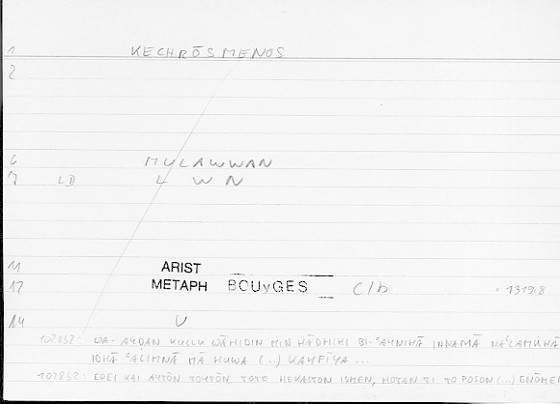 1 KECHRŌSMENOS
2
6 MULAWWAN
7 LD L W N
11 ARIST
12 METAPH BOUyGES C/b 1319.8
14 U
1028b2: WA-AYḌAN KULLU WĀḤIDIN MIN HĀDHIHI BI-ʿAYNIHĀ INNAMĀ NAʿLAMUHĀ
IDHĀ ʿALIMNĀ MĀ HUWA (...) KAYFĪYA ...
1028b2: EPEI KAI AYTŌN TOYTŌN TOTE HEKASTON ISMEN, HOTAN TI TO POSON (...) ENŌMEN